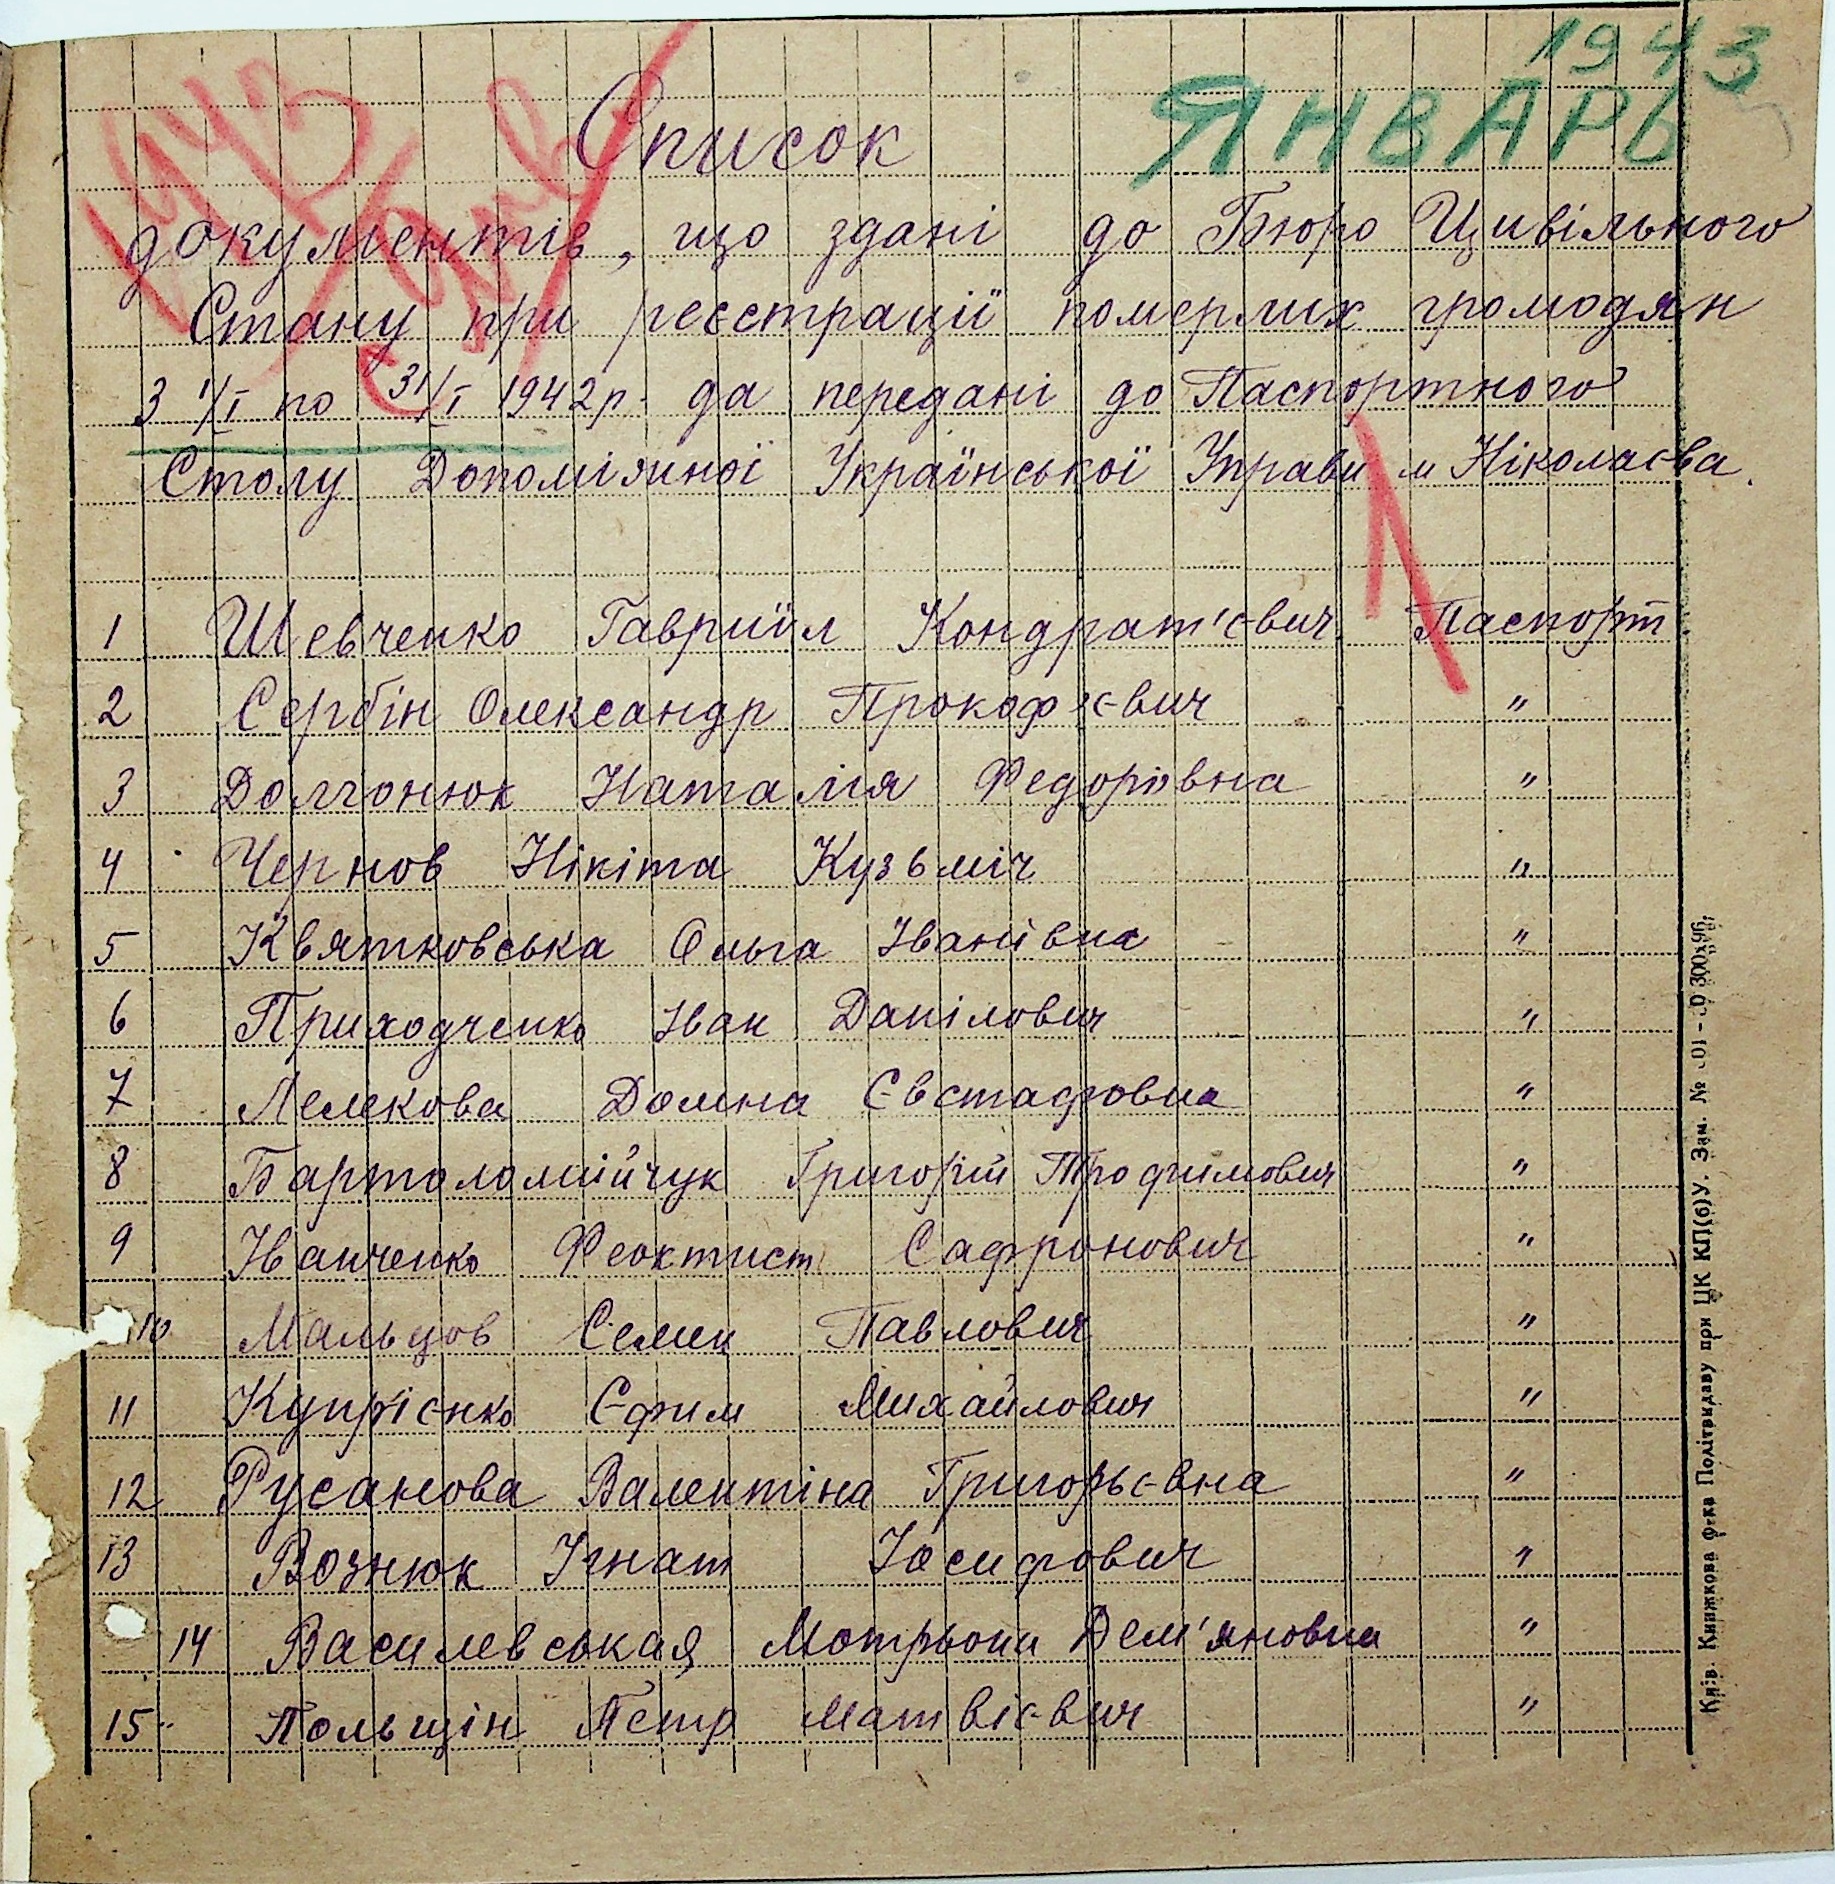 1943
ЯНВАРЬ
1943
Янв.
Список
документів, що здані до Бюро Цивільного
Стану при реєстрації померлих громодян
З 1/I по 31/I 1942 р. да передані до Паспортного
Столу Допоміжної Української Управи м Ніколаєва.
1 Шевченко Гавриїл Кондрат'євич Паспорт
2 Сербін Олександр Прокоф'євич "
3 Долгонюк Наталія Федорівна "
4 Чернов Нікіта Кузьміч "
5 Квятковська Ольга Іванівна "
6 Приходченко Іван Данілович "
7 Лелекова Домна Євстафовна "
8 Бартоломійчук Григорій Трофимович "
9 Іванченко Феоктист Сафронович "
10 Мальцов Семен Павлович "
11 Купрієнко Єфим Михайлович "
12 Русанова Валентіна Григорьєвна "
13 Вознюк Ігнат Іосифович "
14 Василевськая Мотрьона Дем'яновна "
15 Польщін Петр Матвієвич "
Київ. Книжкова ф-ка Політвидаву при ЦК КП(б)У. Зам. №